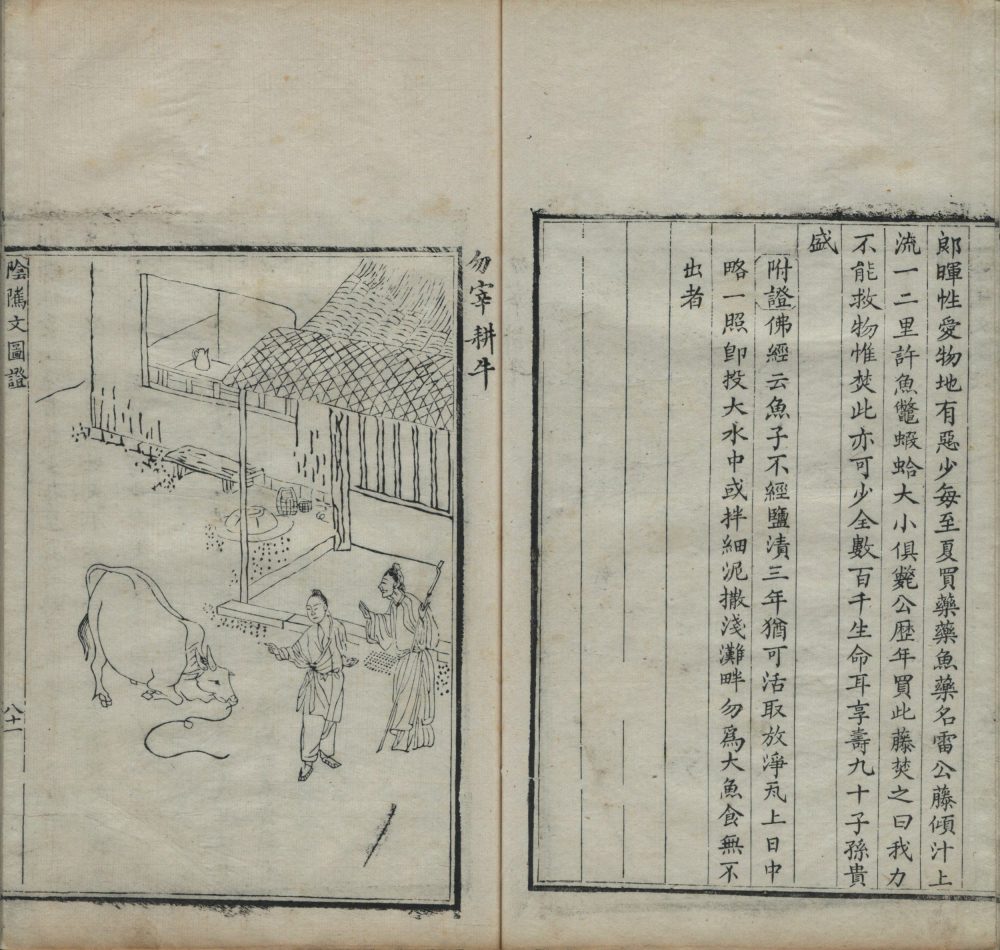 郎暉性愛物地有惡少每至夏買藥藥魚藥名雷公藤傾汁上
流一二里許魚鼈蝦蛤大小俱斃公歴年買此藤焚之曰我力
不能救物惟焚此亦可少全數百千生命耳享壽九十子孫貴
盛
附證佛經云魚子不經鹽漬三年猶可活取放淨瓦上日中
略一照卽投大水中或拌細泥撒淺灘畔勿爲大魚食無不
出者
勿宰耕牛
陰隲文圖證
八十一